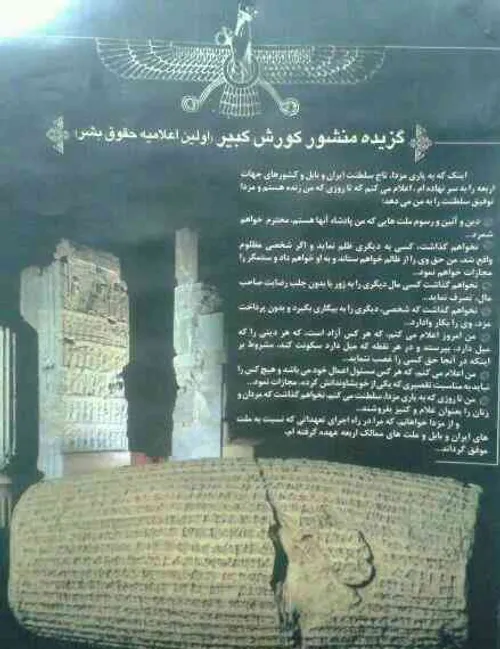 گزیده منشور کورش کبیر (اولین اعلامیه حقوق بشر)
اینک که به یاری مزدا، تاج سلطنت ایران و بابل و کشورهای جهات
اربعه را به سر نهاده ام، اعلام می کنم که تا روزی که من زنده هستم و مزدا
توفیق سلطنت را به من می دهد؛
دین و آئین و رسوم ملت هایی که من پادشاه آنها هستم، محترم خواهم
شمرد.
نخواهم گذاشت، کسی به دیگری ظلم نماید و اگر شخصی مظلوم
واقع شد، من حق وی را از ظالم خواهم ستاند، و به او خواهم داد و ستمگر را
مجازات خواهم نمود...
نخواهم گذاشت کسی مال دیگری را به زور یا بدون جلب رضایت صاحب
مال، تصرف نماید...
نخواهم گذاشت که شخصی، دیگری را به بیگاری بگیرد و بدون پرداخت
مزد، وی را بکار وادارد...
من امروز اعلام می کنم، که هر کس آزاد است، که هر دینی را که
میل دارد، بپرستد و در هر نقطه که میل دارد سکونت کند، مشروط بر
اینکه در آنجا حق کسی را غصب ننماید...
من اعلام می کنم، که هر کس مسئول اعمال خود می باشد و هیچ کس را
نباید به مناسبت تقصیری که یکی از خویشاوندانش کرده، مجازات نمود...
من تا روزی که به یاری مزدا، سلطنت می کنم، نخواهم گذاشت که مردان و
زنان را بعنوان غلام و کنیز بفروشند...
و از مزدا خواهانم، که مرا در راه اجرای تعهداتی که نسبت به ملت
های ایران و بابل و ملت های ممالک اربعه عهده گرفته ام،
موفق گرداند...